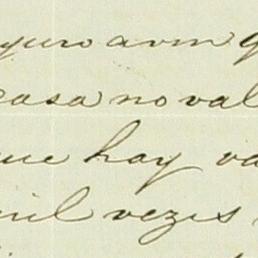 yuro avin q
casa no val
que hay va
mil vezes